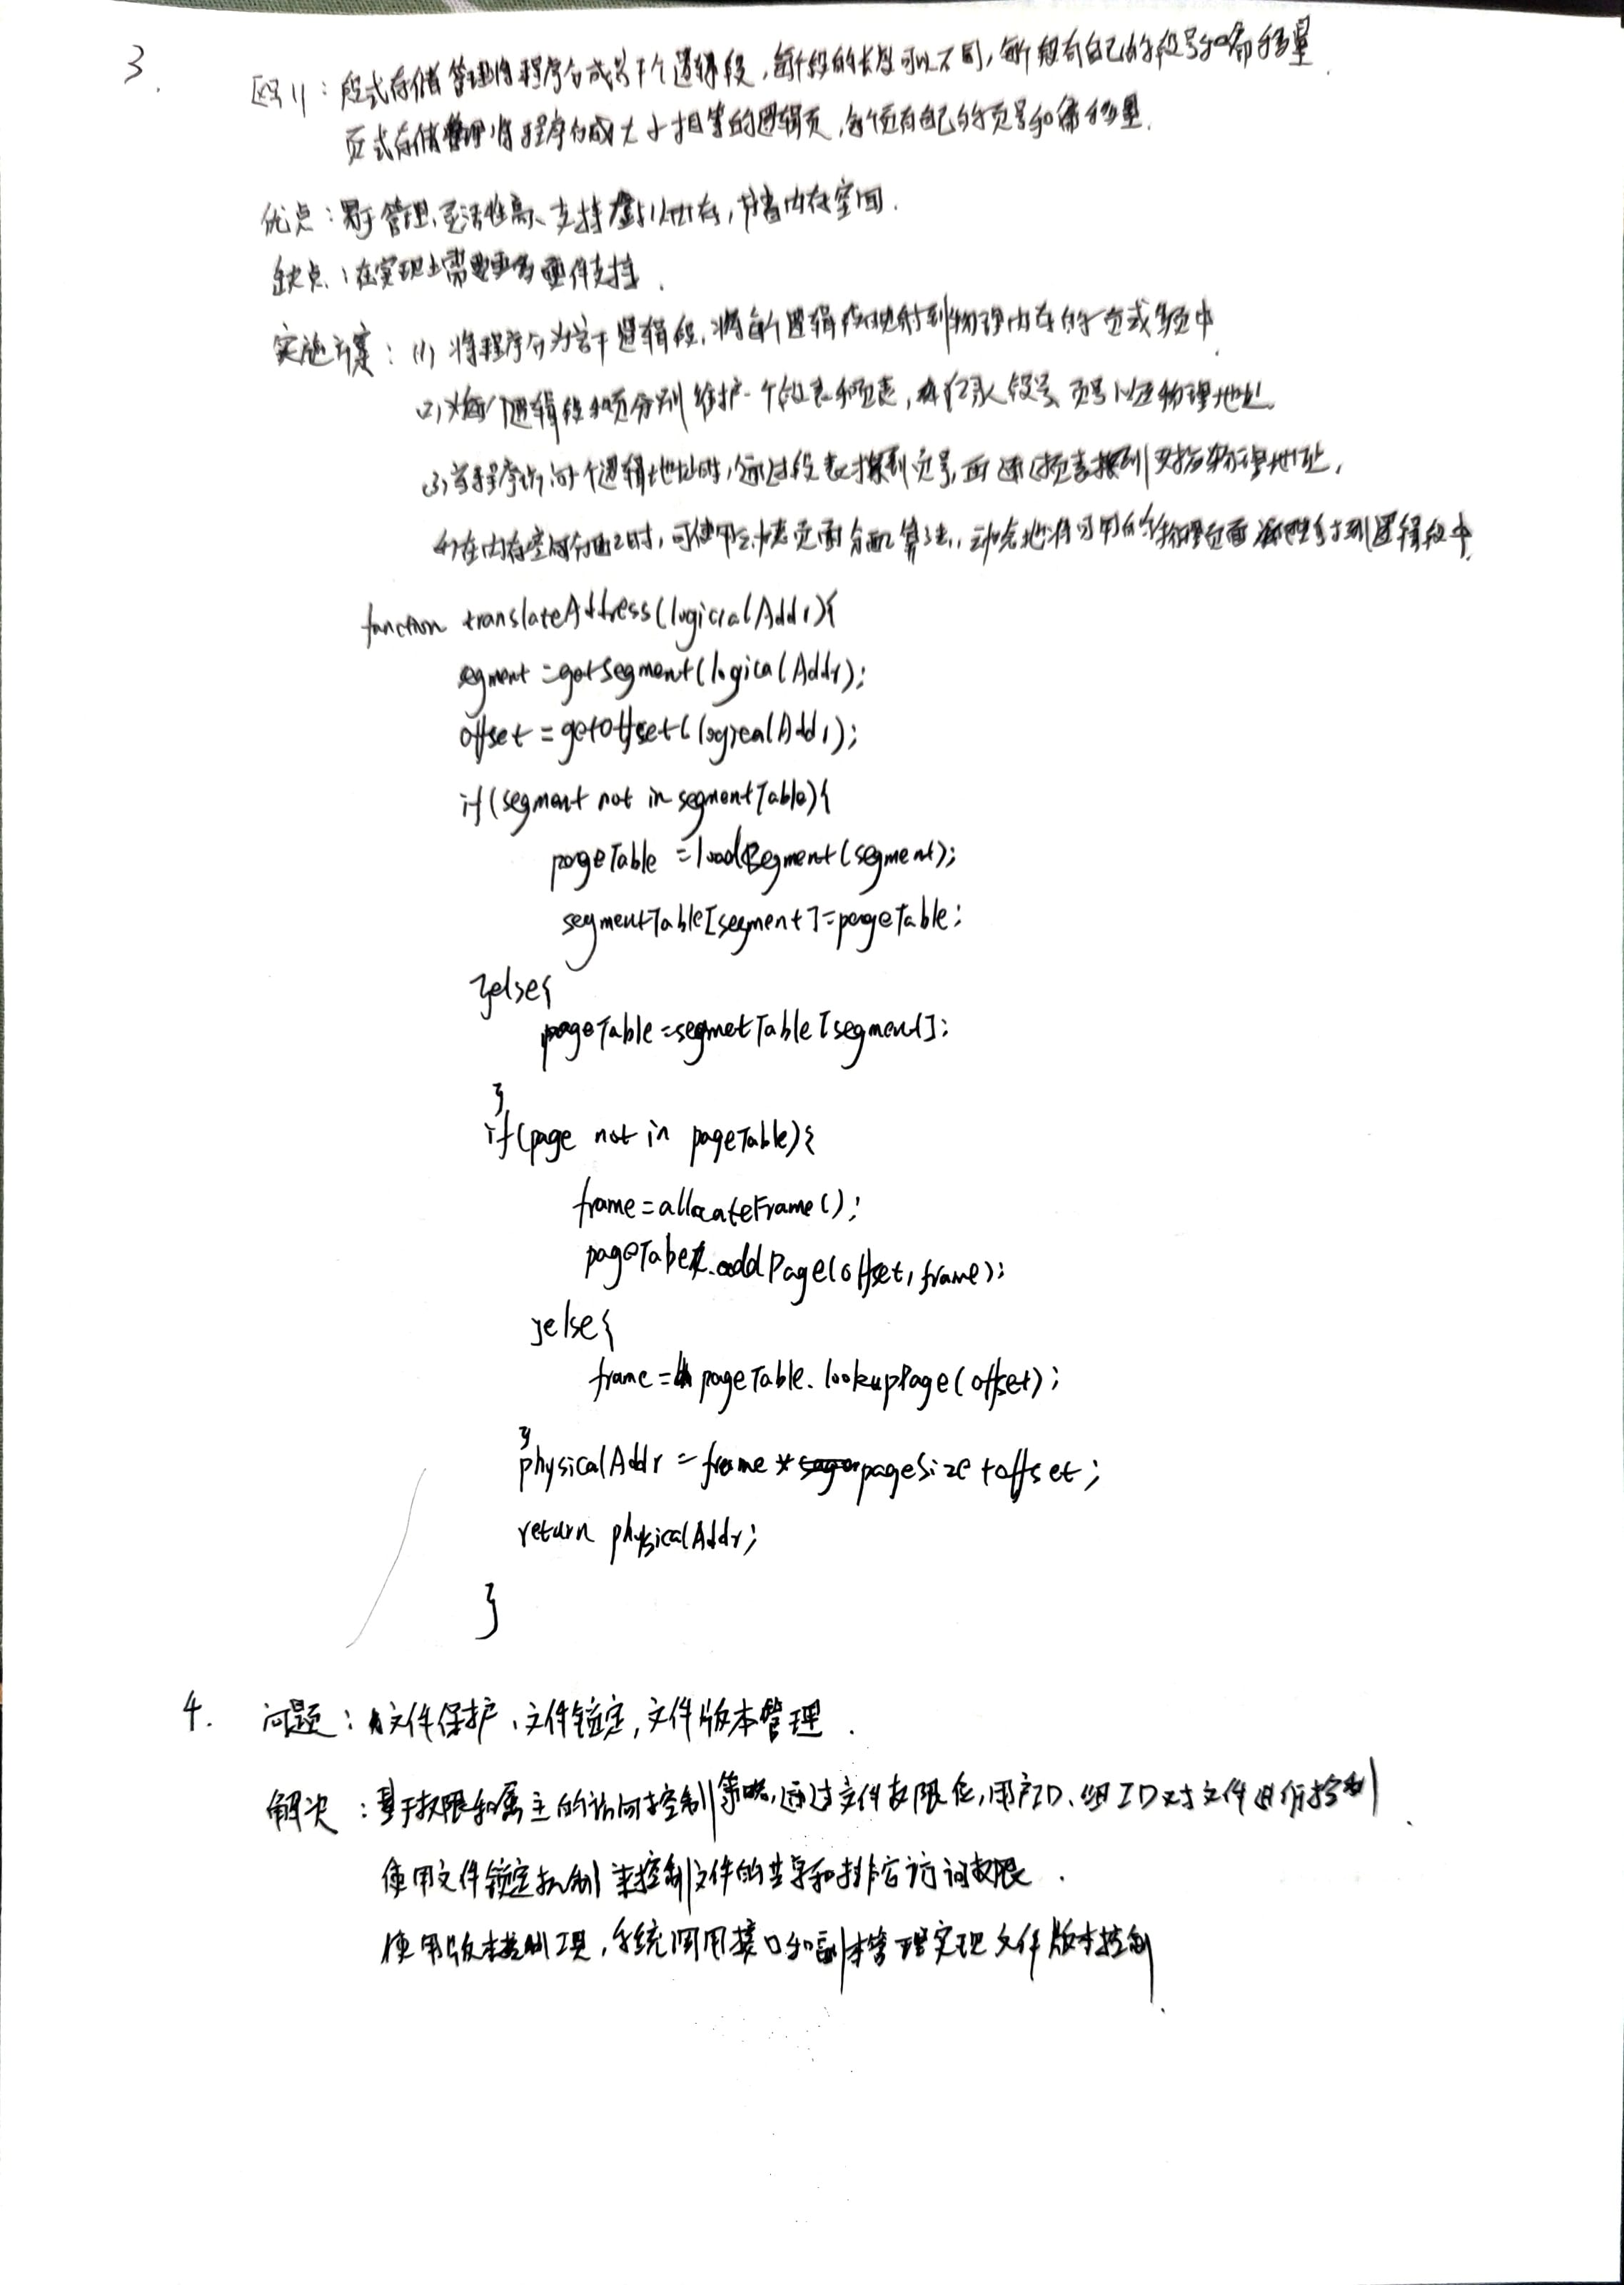 3.
区别：段式存储管理将程序分成若干个逻辑段，每个段的长度可以不同，每个段有自己的段号和偏移量.
页式存储管理将程序分成大小相等的逻辑页，每个页有自己的页号和偏移量.
优点：易于管理、灵活性高、支持虚拟内存，节省内存空间.
缺点：在实现上需要更多硬件支持.
实施方案：(1) 将程序分为若干逻辑段，将每个逻辑段映射到物理内存的一页或多页中.
(2)为每个逻辑段和页分别维护一个段表和页表，来记录段号、页号以及物理地址.
(3)当程序访问一个逻辑地址时，通过段表找到页号，再通过页表找到对应物理地址.
(4)在内存空间分配时，可使用动态页面分配算法，动态地将可用的物理页面映射到逻辑段中.
function translateAddress(logicialAddr){
segment =getsegment(logicalAddr);
offset =getoffset(logicalAddr);
if(segment not in segmentTable){
pageTable =loadSegment(segment);
segmentTable[segment]=pageTable;
}else{
pageTable=segmetTable[segment];
}
if(page not in pageTable){
frame=allocateFrame();
pageTable.addPage(offset,frame);
}else{
frame=pageTable.lookupPage(offset);
}
physicalAddr =frame *pageSize +offset;
return physicalAddr;
}
4. 问题：文件保护、文件锁定，文件版本管理.
解决：基于权限和属主的访问控制策略，通过文件权限位，用户ID、组ID对文件进行控制.
使用文件锁定机制来控制文件的共享和排它访问权限.
使用版本控制工具，系统调用接口和副本管理实现文件版本控制.